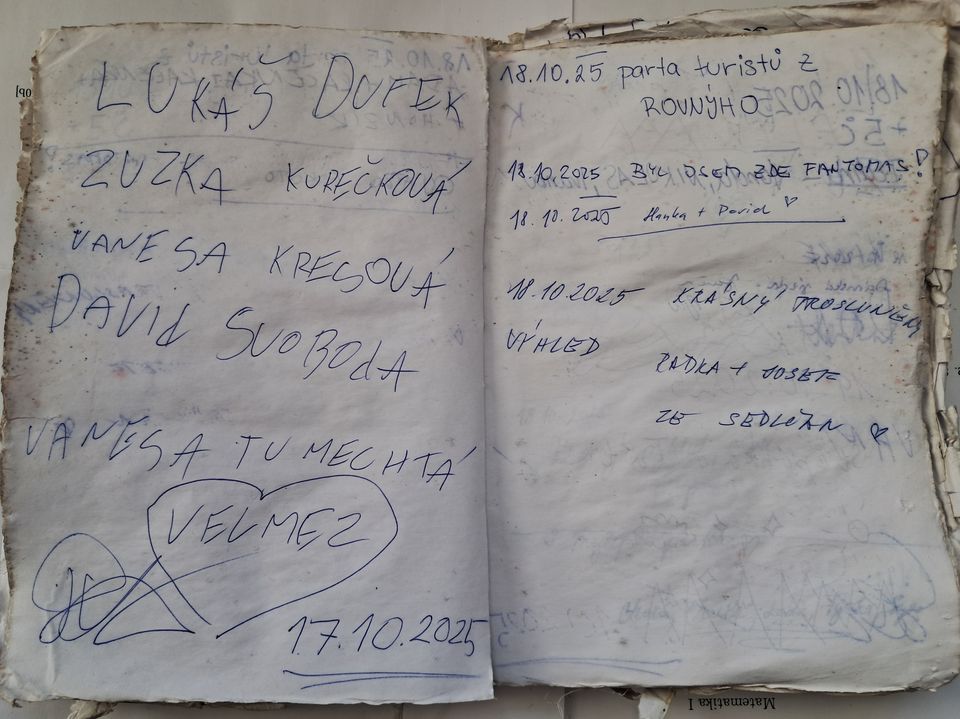 LUKÁŠ DUFEK
ZUZKA KUREČKOVÁ
VANESA KRESOVÁ
DAVID SVOBODA
VANESA TU MECHTÁ
VELMEZ
17.10.2025
18.10.25 parta turistů z
ROVNÝHO
18.10.2025 BYL JSEM ZDE FANTOMAS!
18.10.2025 Hanka + David ♡
18.10.2025 KRÁSNÝ PROSLUNĚNÝ
VÝHLED
RADKA + JOSEF
ZE SEDLČAN ♡
Matematika I